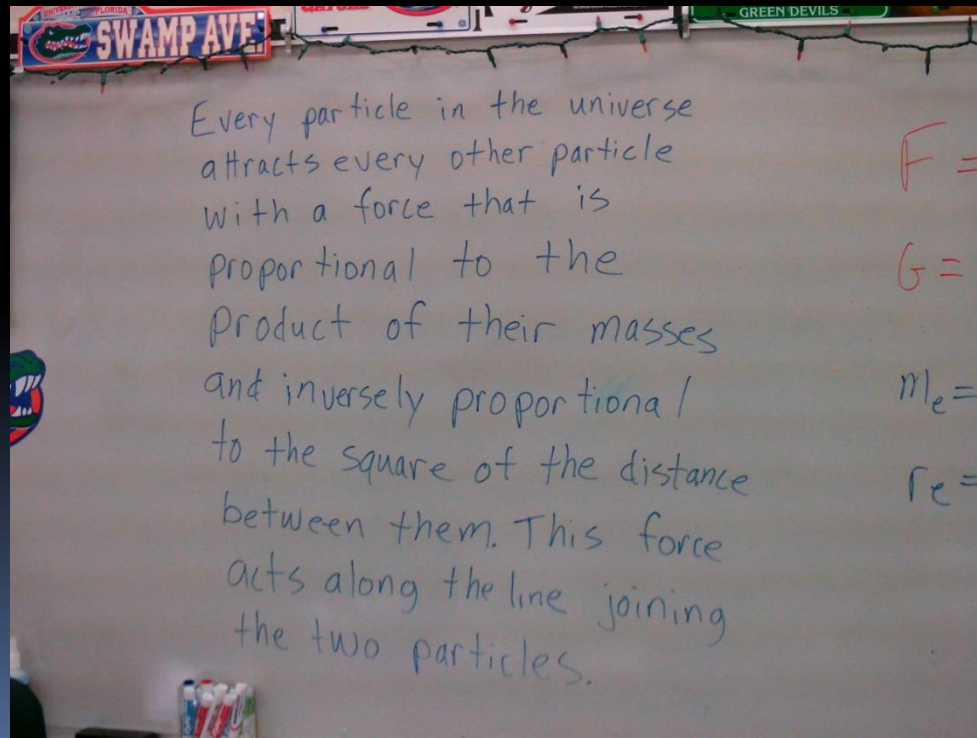 UNIVERSITY FLORIDA
SWAMP AVE
GREEN DEVILS
Every particle in the universe
attracts every other particle
with a force that is
proportional to the
product of their masses
and inversely proportional
to the square of the distance
between them. This force
acts along the line joining
the two particles.
F =
G =
me =
re =